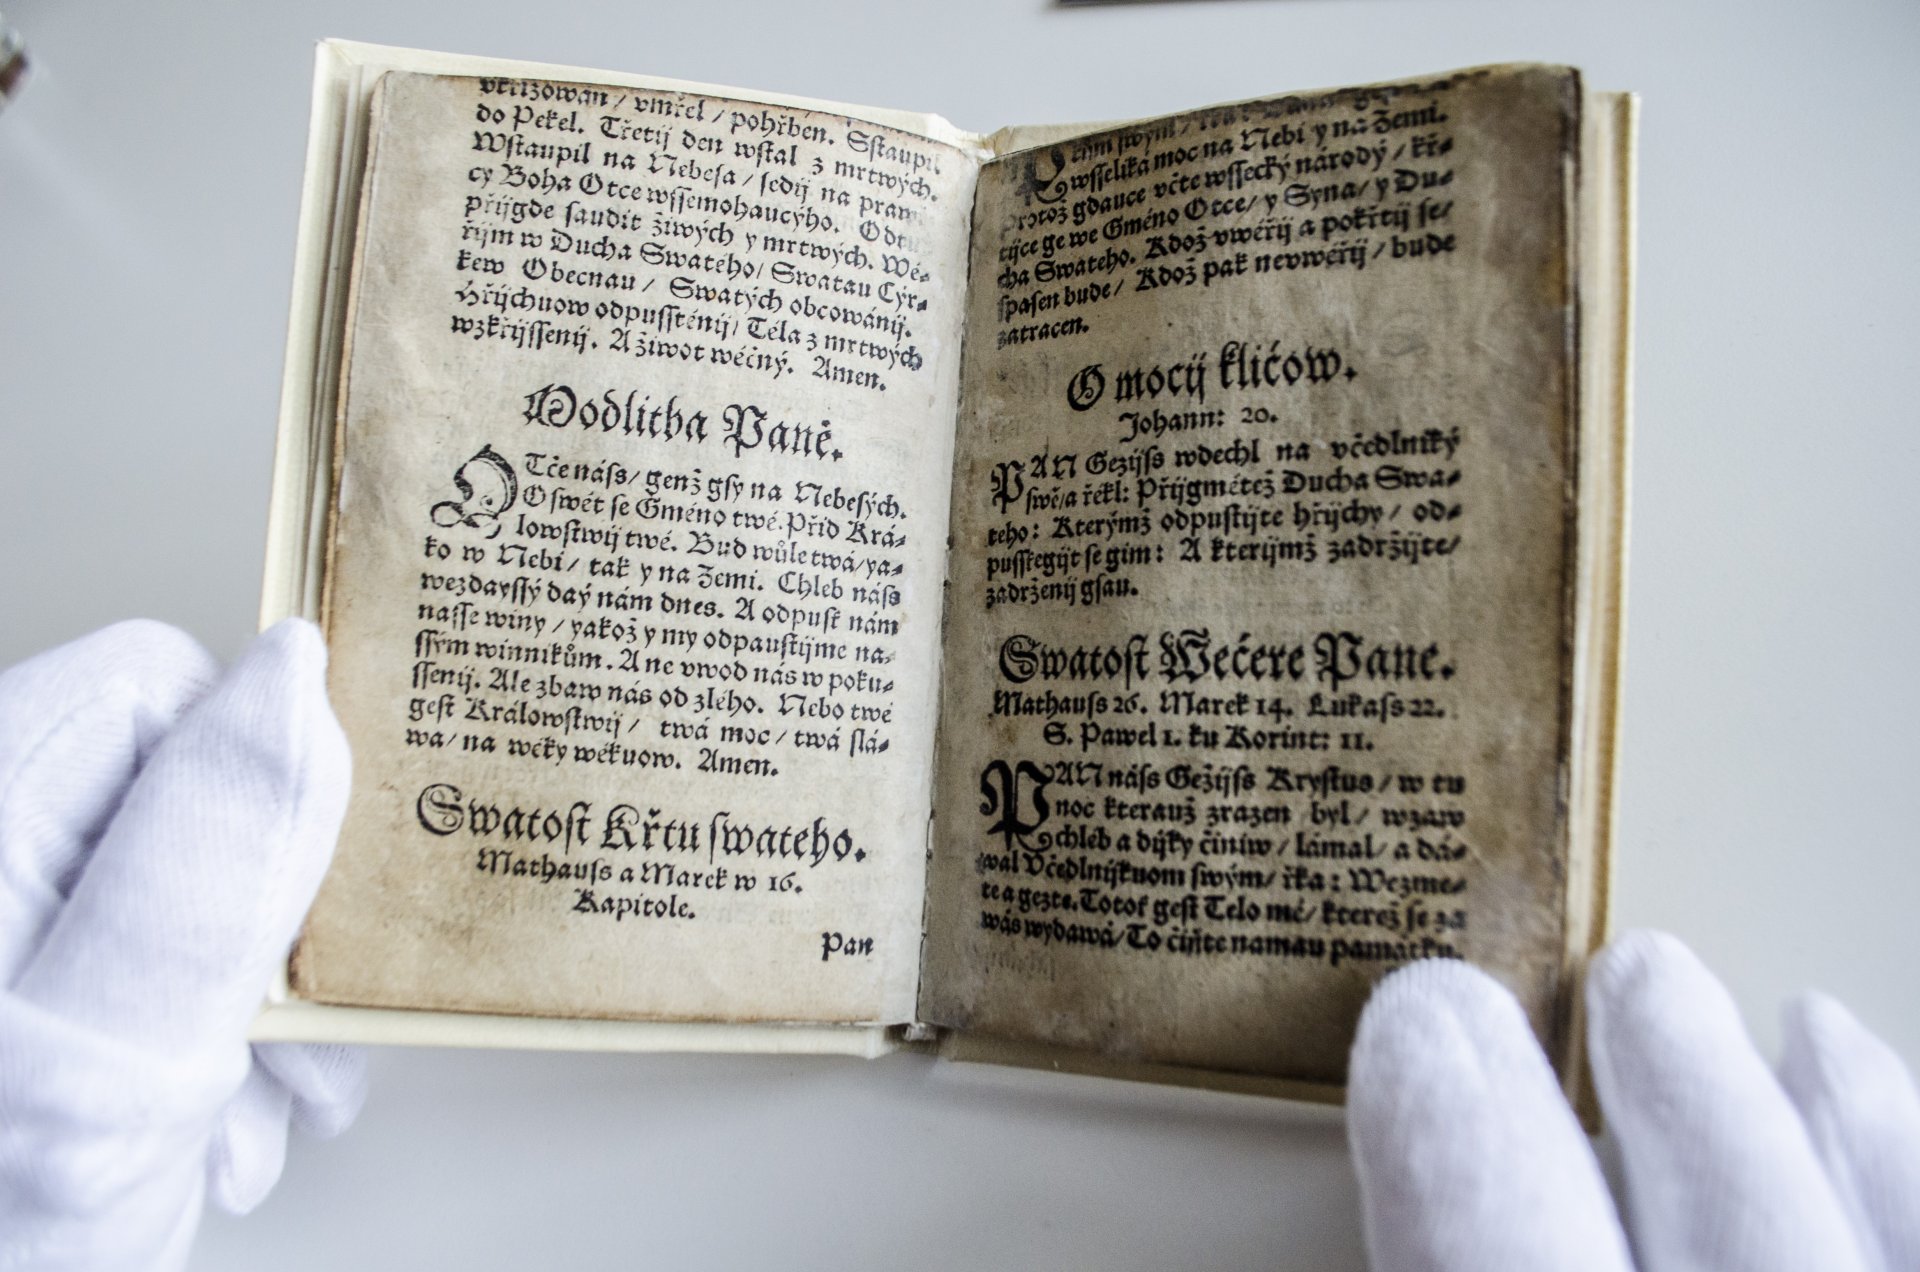 vkřižowan / vmřel / pohřben. Sstaupil
do Pekel. Třetij den wstal z mrtwých.
Wstaupil na Nebesa / sedij na praw
cy Boha Otce wssemohaucýho. Odtu
přijgde saudit žiwých y mrtwých. Wě-
řijm w Ducha Swatého / Swatau Cýr-
kew Obecnau / Swatých obcowánij.
Hřijchuow odpusstěnij / Těla z mrtwých
wzkřijssenij. A žiwot wěčný. Amen.
Modlitba Páně.
OTče náss / genž gsy na Nebesých.
Oswět se Gméno twé. Přid Krá-
lowstwij twé. Bud wůle twá / ya-
ko w Nebi / tak y na Zemi. Chleb náss
wezdayssý day nám dnes. A odpust nám
nasse winy / yakož y my odpaustijme na-
ssým winnikům. A ne vwod nás w poku-
ssenij. Ale zbaw nás od zlého. Nebo twé
gest Králowstwij / twá moc / twá slá-
wa / na wěky wěkuow. Amen.
Swatost Křtu swateho.
Mathauss a Marek w 16.
Kapitole.
Pan
wsseliká moc na Nebi y na Zemi.
Protož gdauce včte wssecky národy / kř-
tijce ge we Gméno Otce / y Syna / y Du-
cha Swateho. Kdož vwěřij a pokřtij se /
spasen bude / Kdož pak nevwěřij / bude
zatracen.
O mocij kličow.
Johann: 20.
PAN Gezijss wdechl na včedlniky
swě / a řekl: Přijgmětež Ducha Swa-
teho: Kterýmž odpustijte hřijchy / od-
pusstegijt se gim: A kterijmž zadržijte /
zadrženij gsau.
Swatost Wečere Pane.
Mathauss 26. Marek 14. Lukass 22.
S. Pawel 1. ku Korint: 11.
PAN náss Gežijss Krystus / w tu
noc kterauž zrazen byl / wzaw
chléb a dijky činiw / lámal / a dá-
wal Včedlnijkuom swým / řka: Wezme-
te a gezte. Totoť gest Tělo mé / kterež se za
wás wydawá / To čiňte na mau památku.